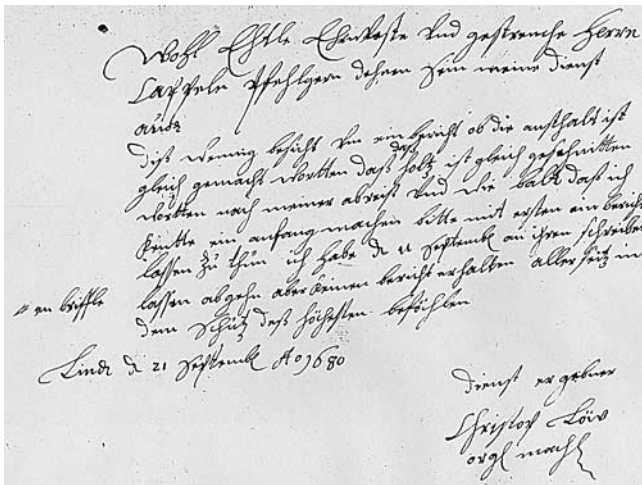 Wohl Edle Ehrnveste und gestrenche Herrn
dehnen sein meine dienst
diss wennig besicht um ein bericht ob die ansthalt ist
gleich gemacht wortten dass das holtz ist gleich geschnitten
wortten nach meiner abreist und wie balt dass ich
kentte ein anfang machen bitte mit ersten ein bericht
lassen zu thun ich habe d 11 Septemb an ihren schreiber
en briffle lassen abgehn aber keinen bericht erhalten aller seitz in
dem Schutz dess höchesten befohlen
Lintz d 21 Septemb Ao 1680
dienst ergebner
Christof Löw
orgl mach